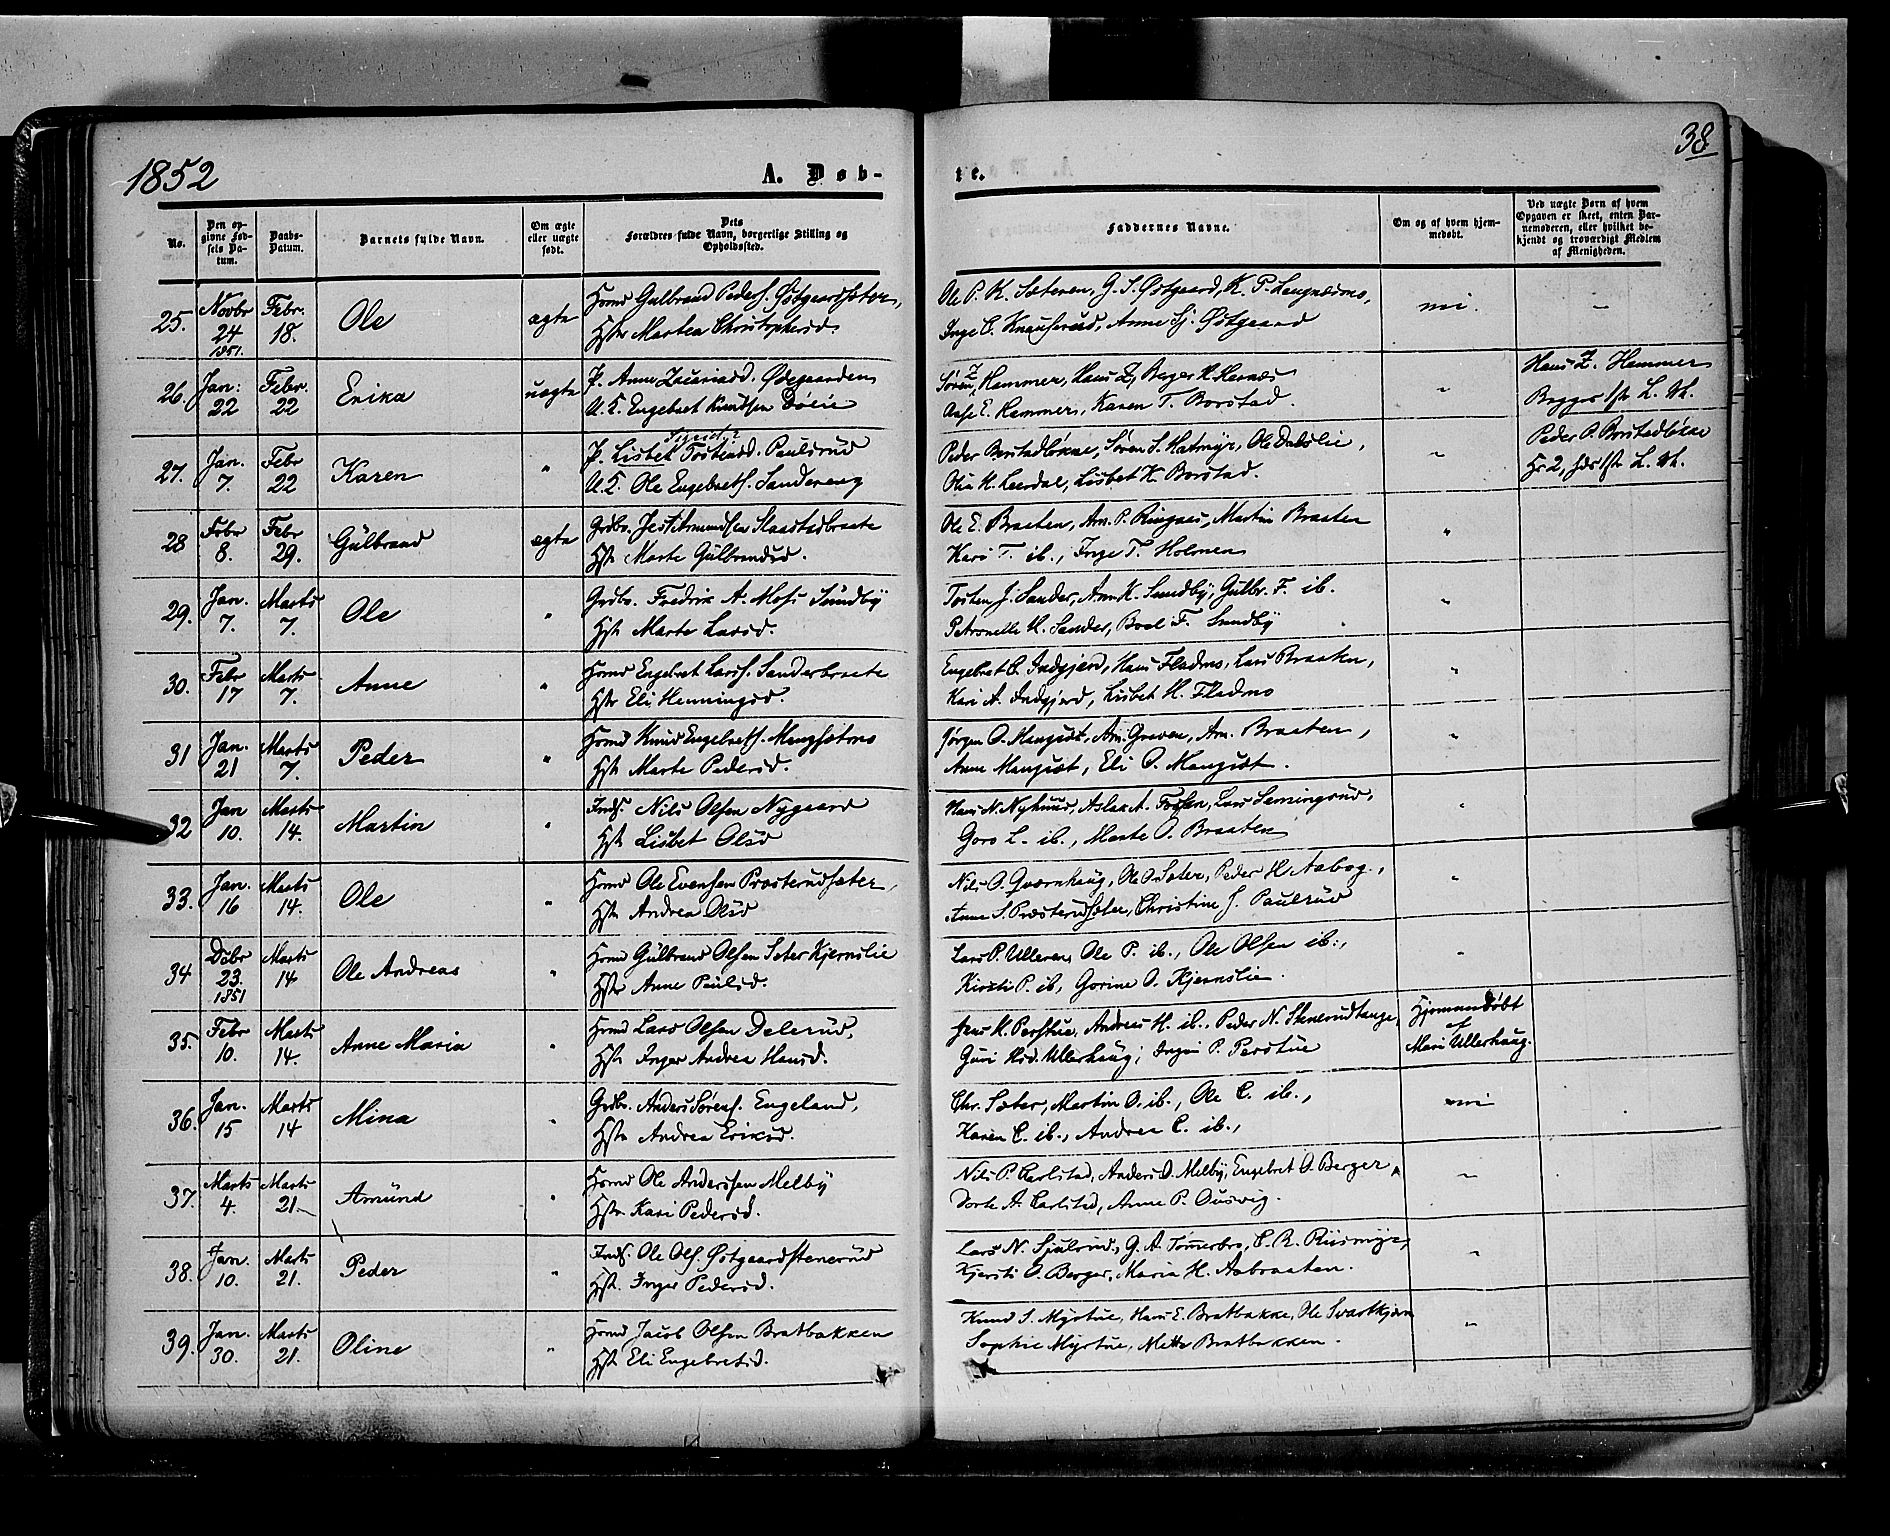 1852
A. Døb-
te.
38
No.
Den op-
givne Fød-
sels Da-
tum.
Daabs-
Datum.
Barnets fulde Navn.
Om ægte
eller uægte
født.
Dets
Forældres fulde Navn, borgerlige Stilling og
Opholdssted.
Faddernes Navne.
Om og af hvem hjem-
medøbt.
Ved uægte Børn af hvem
Opgaven er skeet, enten Bar-
nemoderen, eller hvilket be-
kjendt og troværdigt Medlem
af Menigheden.
25. Novbr 24 1851. Febr. 18. Ole ægte
Hmd Gulbrand Peders. Østgaardsæter,
Hstr Marthea Christophersd.
Ole P. K. Sæteren, G. S. Østgaard, K. P. Langnæsmo,
Inge C. Knauserud, Anne Sj. Østgaard
nei. —
26. Jan: 22 Febr. 22 Erika uægte
P. Anne Zacariasd. Ødegaarden
U. K. Engebret Knudsen Døcie
Søren Z. Hammer, Hans Z, Berger H. Hernæs
Aase E. Hammer, Karen T. Borstad.
"
Hans Z. Hammer
27. Jan. 7. Febr 22 Karen "
P. Lisbet Tostensd. Paulsrud
U. K. Ole Engebrets. Sandereng
Peder Borstadløkke, Søren S. Hatmyr, Ole Dalslie,
Olia H. Leerdal, Lisbet K. Borstad.
"
Peder P. Borstadløkke
28 Febr 8. Febr 29. Gulbrand ægte
Grdbr. Jens Amundsen Slaastadbraate
Hstr Marte Gulbrandsd.
Ole E. Braaten, Am. P. Ringaas, Martin Braaten
Kari T. ib., Inge T. Holmen
"
29. Jan. 7. Marts 7. Ole "
Grdbr. Fredrik A. Moss Sundby
Hstr Marte Larsd.
Tosten J. Sander, Am. K. Sundby, Gulbr. F. ib.
Petronelle H. Sander, Boel F. Sundby
"
30. Febr 17 Marts 7. Anne "
Hmd Engebret Larss. Sanderbraate
Hstr Eli Henningsd.
Engebret O. Indgjerd, Hans Fladmo, Lars Braaten,
Kari A. Indgjerd, Lisbet H. Fladmo
"
31 Jan. 21 Marts 7. Peder "
Hmd Knud Engebrets.
Hstr Marte Pedersd.
Jørgen O. Mangset, Am. Graven, Am. Braaten,
Anne Mangset, Eli O. Mangset.
"
32 Jan 10. Marts 14. Martin "
Inds. Nils Olsen Nygaard
Hstr Lisbet Olsd
Hans N. Nyhuus, Aslak A. Fossen, Lars Semingsrud,
Goro L. ib., Marte O. Braaten
"
33. Jan. 16 Marts 14. Ole "
Hmd Ole Evensen Præsterudsæter,
Hstr Andrea Olsd
Nils O. Qværnhaug, Ole O. Sæter, Peder H. Aabog.,
Anne S. Præsterudsæter, Christine J. Paulsrud
"
34 Dcbr 23. 1851 Marts 14 Ole Andreas "
Hmd Gulbrand Olsen Sæter Kjernslie
Hstr Anne Paulsd.
Lars P. Ulleren, Ole P. ib., Ole Olsen ib.,
Kirsti P. ib, Gorine O. Kjernslie.
"
35. Febr 10. Marts 14. Anne Maria "
Hmd Lars Olsen Delerud,
Hstr Inger Andrea Hansd.
Jens K. Perstue, Andreas H. ib., Peder N. Skinerudtange,
Guri Ullerhaug, Ingri P. Perstue
Hjemmedøbt
af
Mari Ullerhaug.
36. Jan. 15 Marts 14 Mina "
Grdbr. Anders Sørens. Engeland,
Hstr Andrea Eriksd.
Chr. Sæter, Martin O. ib., Ole C. ib.,
Karen C. ib., Andrea C. ib.,
nei
37. Marts 4. Marts 21. Amund "
Hmd Ole Anderssen Melby
Hstr. Kari Pedersd.
Nils P. Carlstad, Anders O. Melby, Engebret O. Berger
Dorte A. Carlstad, Anne P. Ousvig.
"
38. Jan. 10. Marts 21. Peder "
Inds. Ole Ols. Østgaardstenerud
Hstr. Inger Pedersd.
Lars N. Sjulsrud, G. A. Tømerbro, C. R. Rismyr,
Kjersti O. Berger, Maria H. Aabraaten.
"
39. Jan. 30. Marts 21. Oline "
Hmd Jacob Olsen Bratbakken
Hstr Eli Engebretsd.
Knud S. Myrstue, Hans E. Bratbakke, Ole Svartkjern
Sophie Myrstue, Mette Bratbakken.
"